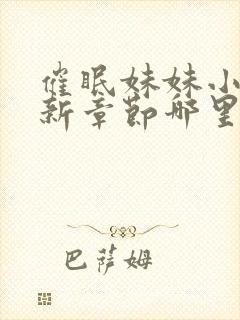 催眠妹妹小
新章节哪里
巴萨姆